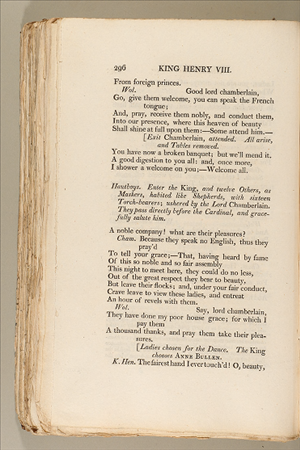 296 KING HENRY VIII.
From foreign princes.
Wol. Good lord chamberlain,
Go, give them welcome, you can speak the French
tongue;
And, pray, receive them nobly, and conduct them,
Into our presence, where this heaven of beauty
Shall shine at full upon them:—Some attend him.—
[Exit Chamberlain, attended. All arise,
and Tables removed.
You have now a broken banquet; but we'll mend it.
A good digestion to you all: and, once more,
I shower a welcome on you;—Welcome all.
Hautboys. Enter the King, and twelve Others, as
Maskers, habited like Shepherds, with sixteen
Torch-bearers; ushered by the Lord Chamberlain.
They pass directly before the Cardinal, and grace-
fully salute him.
A noble company! what are their pleasures?
Cham. Because they speak no English, thus they
pray'd
To tell your grace;—That, having heard by fame
Of this so noble and so fair assembly
This night to meet here, they could do no less,
Out of the great respect they bear to beauty,
But leave their flocks; and, under your fair conduct,
Crave leave to view these ladies, and entreat
An hour of revels with them.
Wol. Say, lord chamberlain,
They have done my poor house grace; for which I
pay them
A thousand thanks, and pray them take their plea-
sures.
[Ladies chosen for the Dance. The King
chooses ANNE BULLEN.
K. Hen. The fairest hand I ever touch'd! O, beauty,